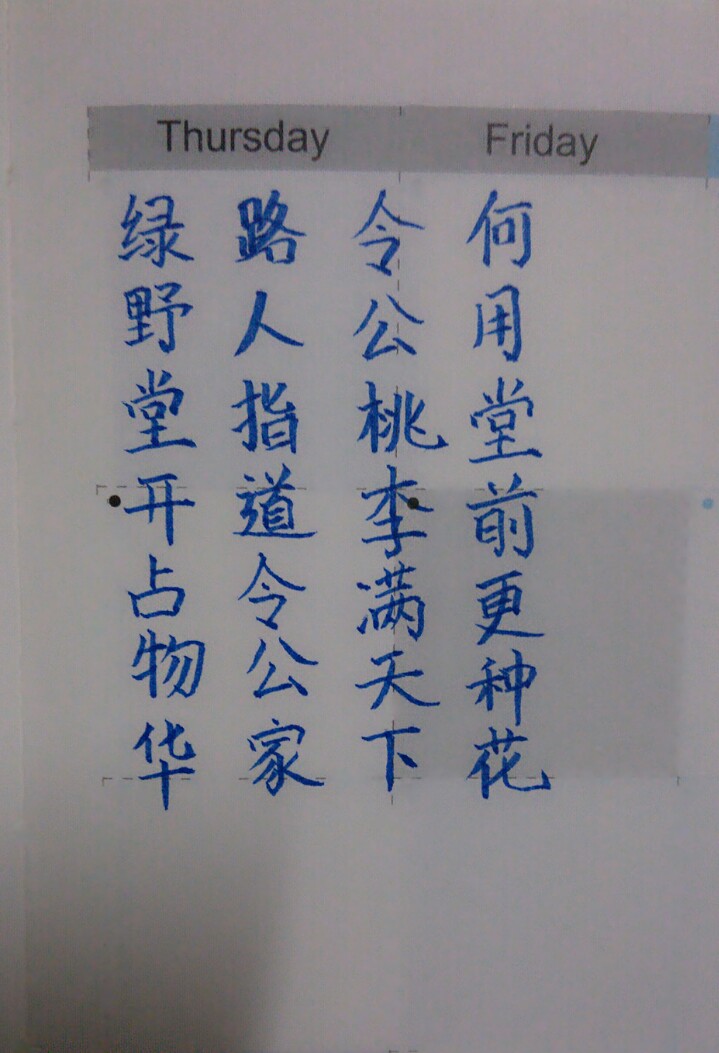 Thursday
Friday
绿野堂开占物华
路人指道令公家
令公桃李满天下
何用堂前更种花